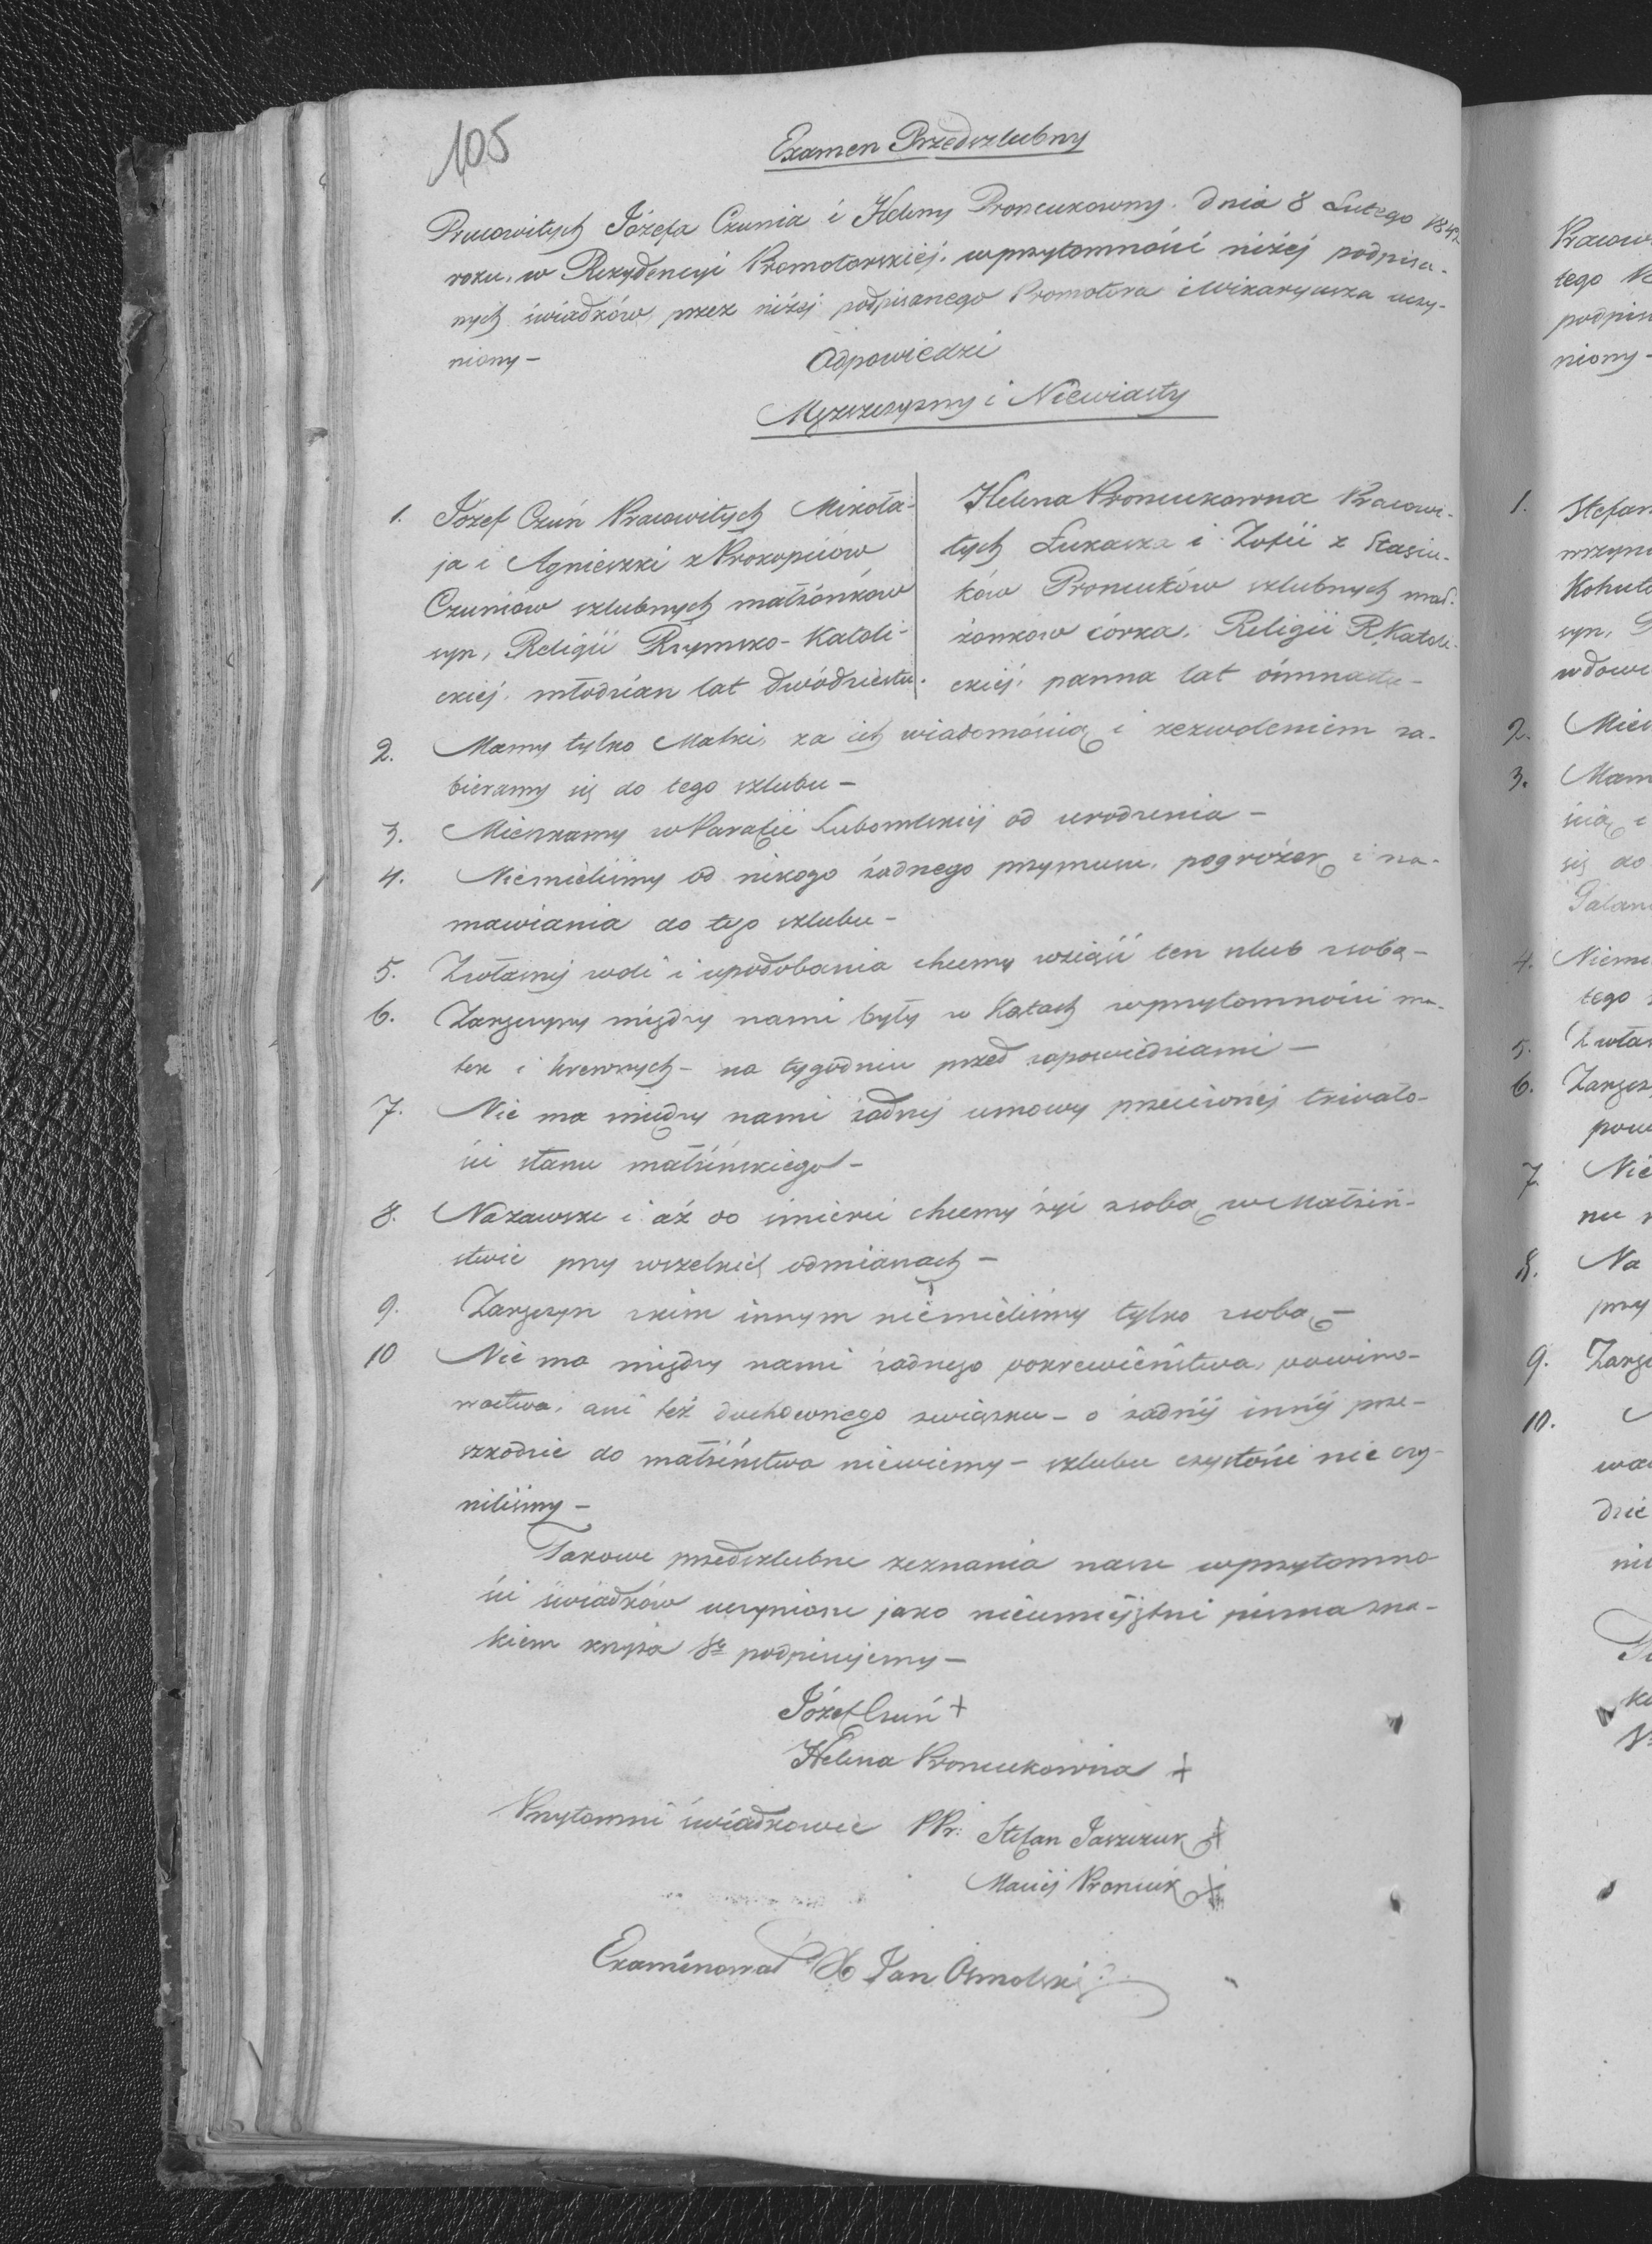 105
Examen Przedszlubny
Pracowitych Józefa Czunia i Heleny Proncukowny. dnia 8 Lutego 1842
roku. w Rezydencyi Promotorskiéj. wprzytomności niżéj podpisa-
nych świadków, przez niżéj podpisanego Promotora i Wikaryusza uczy-
niony –
Odpowiedzi
Męszczyzny i Niewiasty
1. Jozef Czuń Pracowitych Mikoła-
ja i Agnieszki z Prokopiuów
Czuniów szlubnych małżonków
syn, Religii Rzymsko-Katoli-
ckiéj. młodzian lat dwódziestu.
Helena Proncukowna Pracowi-
tych Łukasza i Zofii z Stasiu-
ków Proncuków szlubnych mał-
żonkow córka. Religii R. Katoli-
ckiéj. panna lat ośmnastu –
2. Mamy tylko Matki, za ich wiadomością i zezwoleniem za-
bieramy się do tego szlubu –
3. Mieszkamy w Parafii Lubomlskiéj od urodzenia –
4. Niemieliśmy od nikogo żadnego przymusu, pogróżek i na-
mawiania do tego szlubu –
5. Zwłasnéj woli i upodobania chcemy wziąść ten szlub zsobą –
6. Zaręczyny między nami były w Kątach wprzytomności ma-
tek i krewnych – na tygodniu przed zapowiedziami –
7. Nie ma między nami żadnéj umowy przeciwnéj trwało-
ści stanu małżeńskiego –
8. Nazawsze i aż do śmierci chcemy żyć zsobą w Małżeń-
stwie przy wszelkich odmianach –
9. Zaręczyn zkim innym niemieliśmy tylko zsobą –
10 Nie ma między nami żadnego pokrewieństwa, powino-
wactwa, ani też duchownego związku – o żadnéj innéj prze-
szkodzie do małżeństwa niewiemy – szlubu czystości nie czy-
niliśmy –
Takowe przedszlubne zeznania nasze wprzytomno
ści świadków uczynione jako nieumiejętni pisma zna-
kiem krzyża Sgo podpisujemy –
Józef Czuń +
Helena Proncukowna +
Przytomni świadkowie PPr: Stefan Jaszczuk +
Maciéj Proncuk +
Examinował X Jan Osmolski